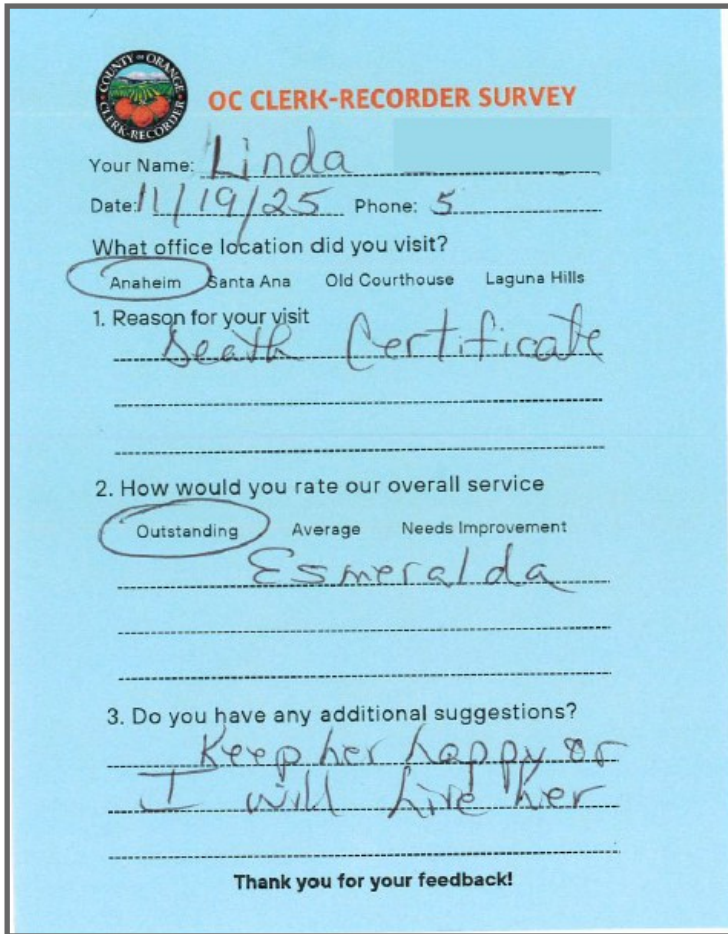 COUNTY OF ORANGE
CLERK-RECORDER
OC CLERK-RECORDER SURVEY
Your Name: Linda
Date: 11/19/25 Phone: 5
What office location did you visit?
Anaheim Santa Ana Old Courthouse Laguna Hills
1. Reason for your visit
Death Certificate
2. How would you rate our overall service
Outstanding Average Needs Improvement
Esmeralda
3. Do you have any additional suggestions?
Keep her happy or
I will hire her
Thank you for your feedback!